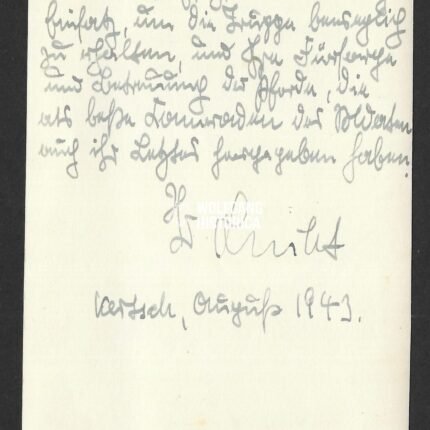 Einsatz, um die Truppe beweglich
zu erhalten, und Ihre Fürsorge
und Betreuung der Pferde, die
als beste Kameraden des Soldaten
auch ihr Letztes hergegeben haben.
WOLFGANG
HISTORICA
Kertsch, August 1943.